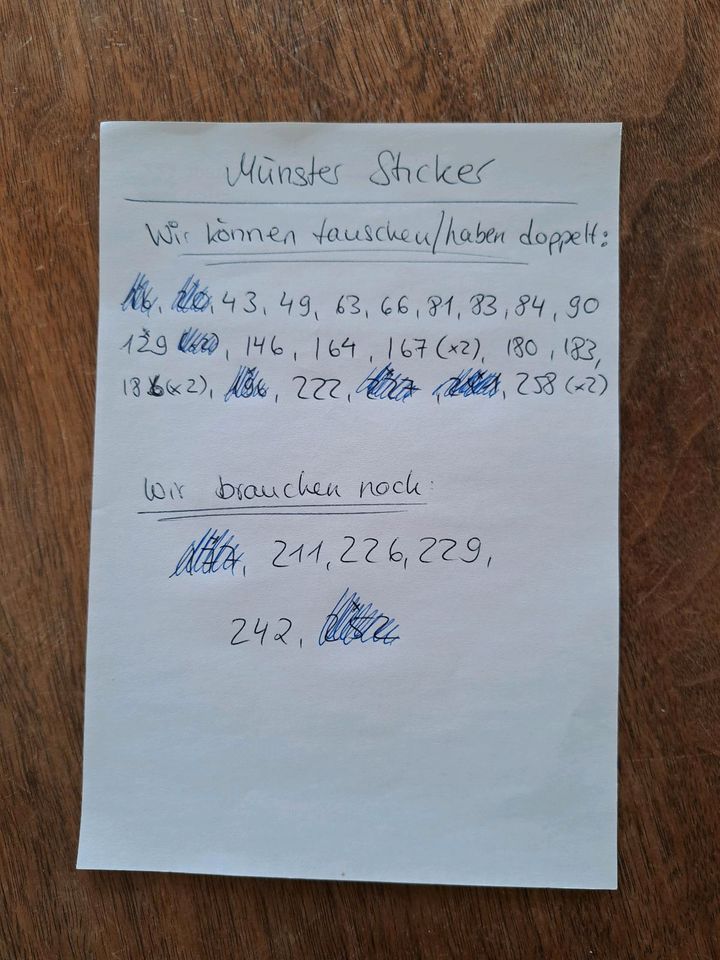 Münster Sticker
Wir können tauschen/haben doppelt:
43, 49, 63, 66, 81, 83, 84, 90
129, 146, 164, 167 (x2), 180, 183,
186 (x2), 222, 258 (x2)
Wir brauchen noch:
211, 226, 229,
242,